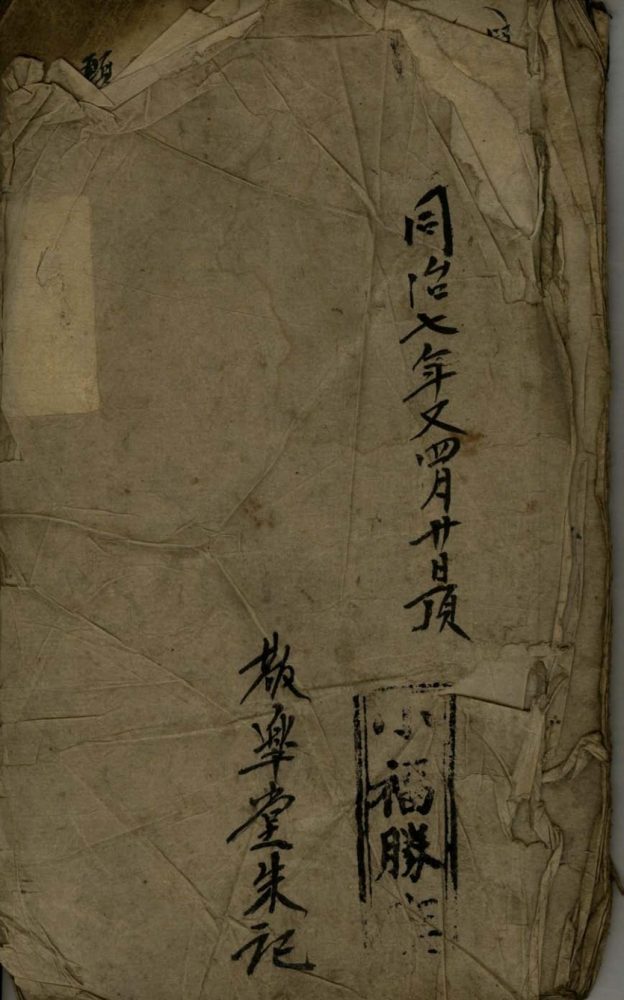 同治七年又四月廿日頂
小福勝
樂堂朱記